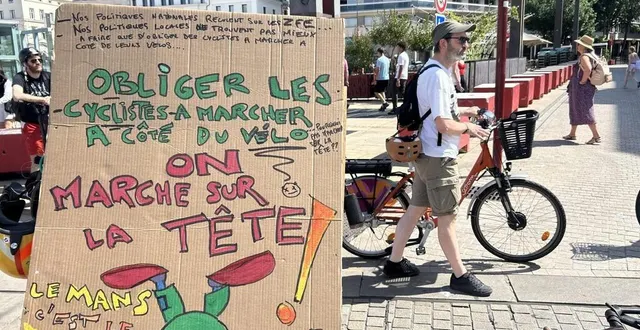 Nos politiques nationales reculent sur les ZFE...
Nos politiques locales ne trouvent pas mieux
à faire que d'obliger des cyclistes à marcher à
côté de leurs vélos...
OBLIGER LES
CYCLISTES A MARCHER
A CÔTÉ DU VÉLO
Pourquoi
pas marcher
sur la
tête ??
ON
MARCHE SUR
LA TÊTE !
LE MANS
C'EST LE